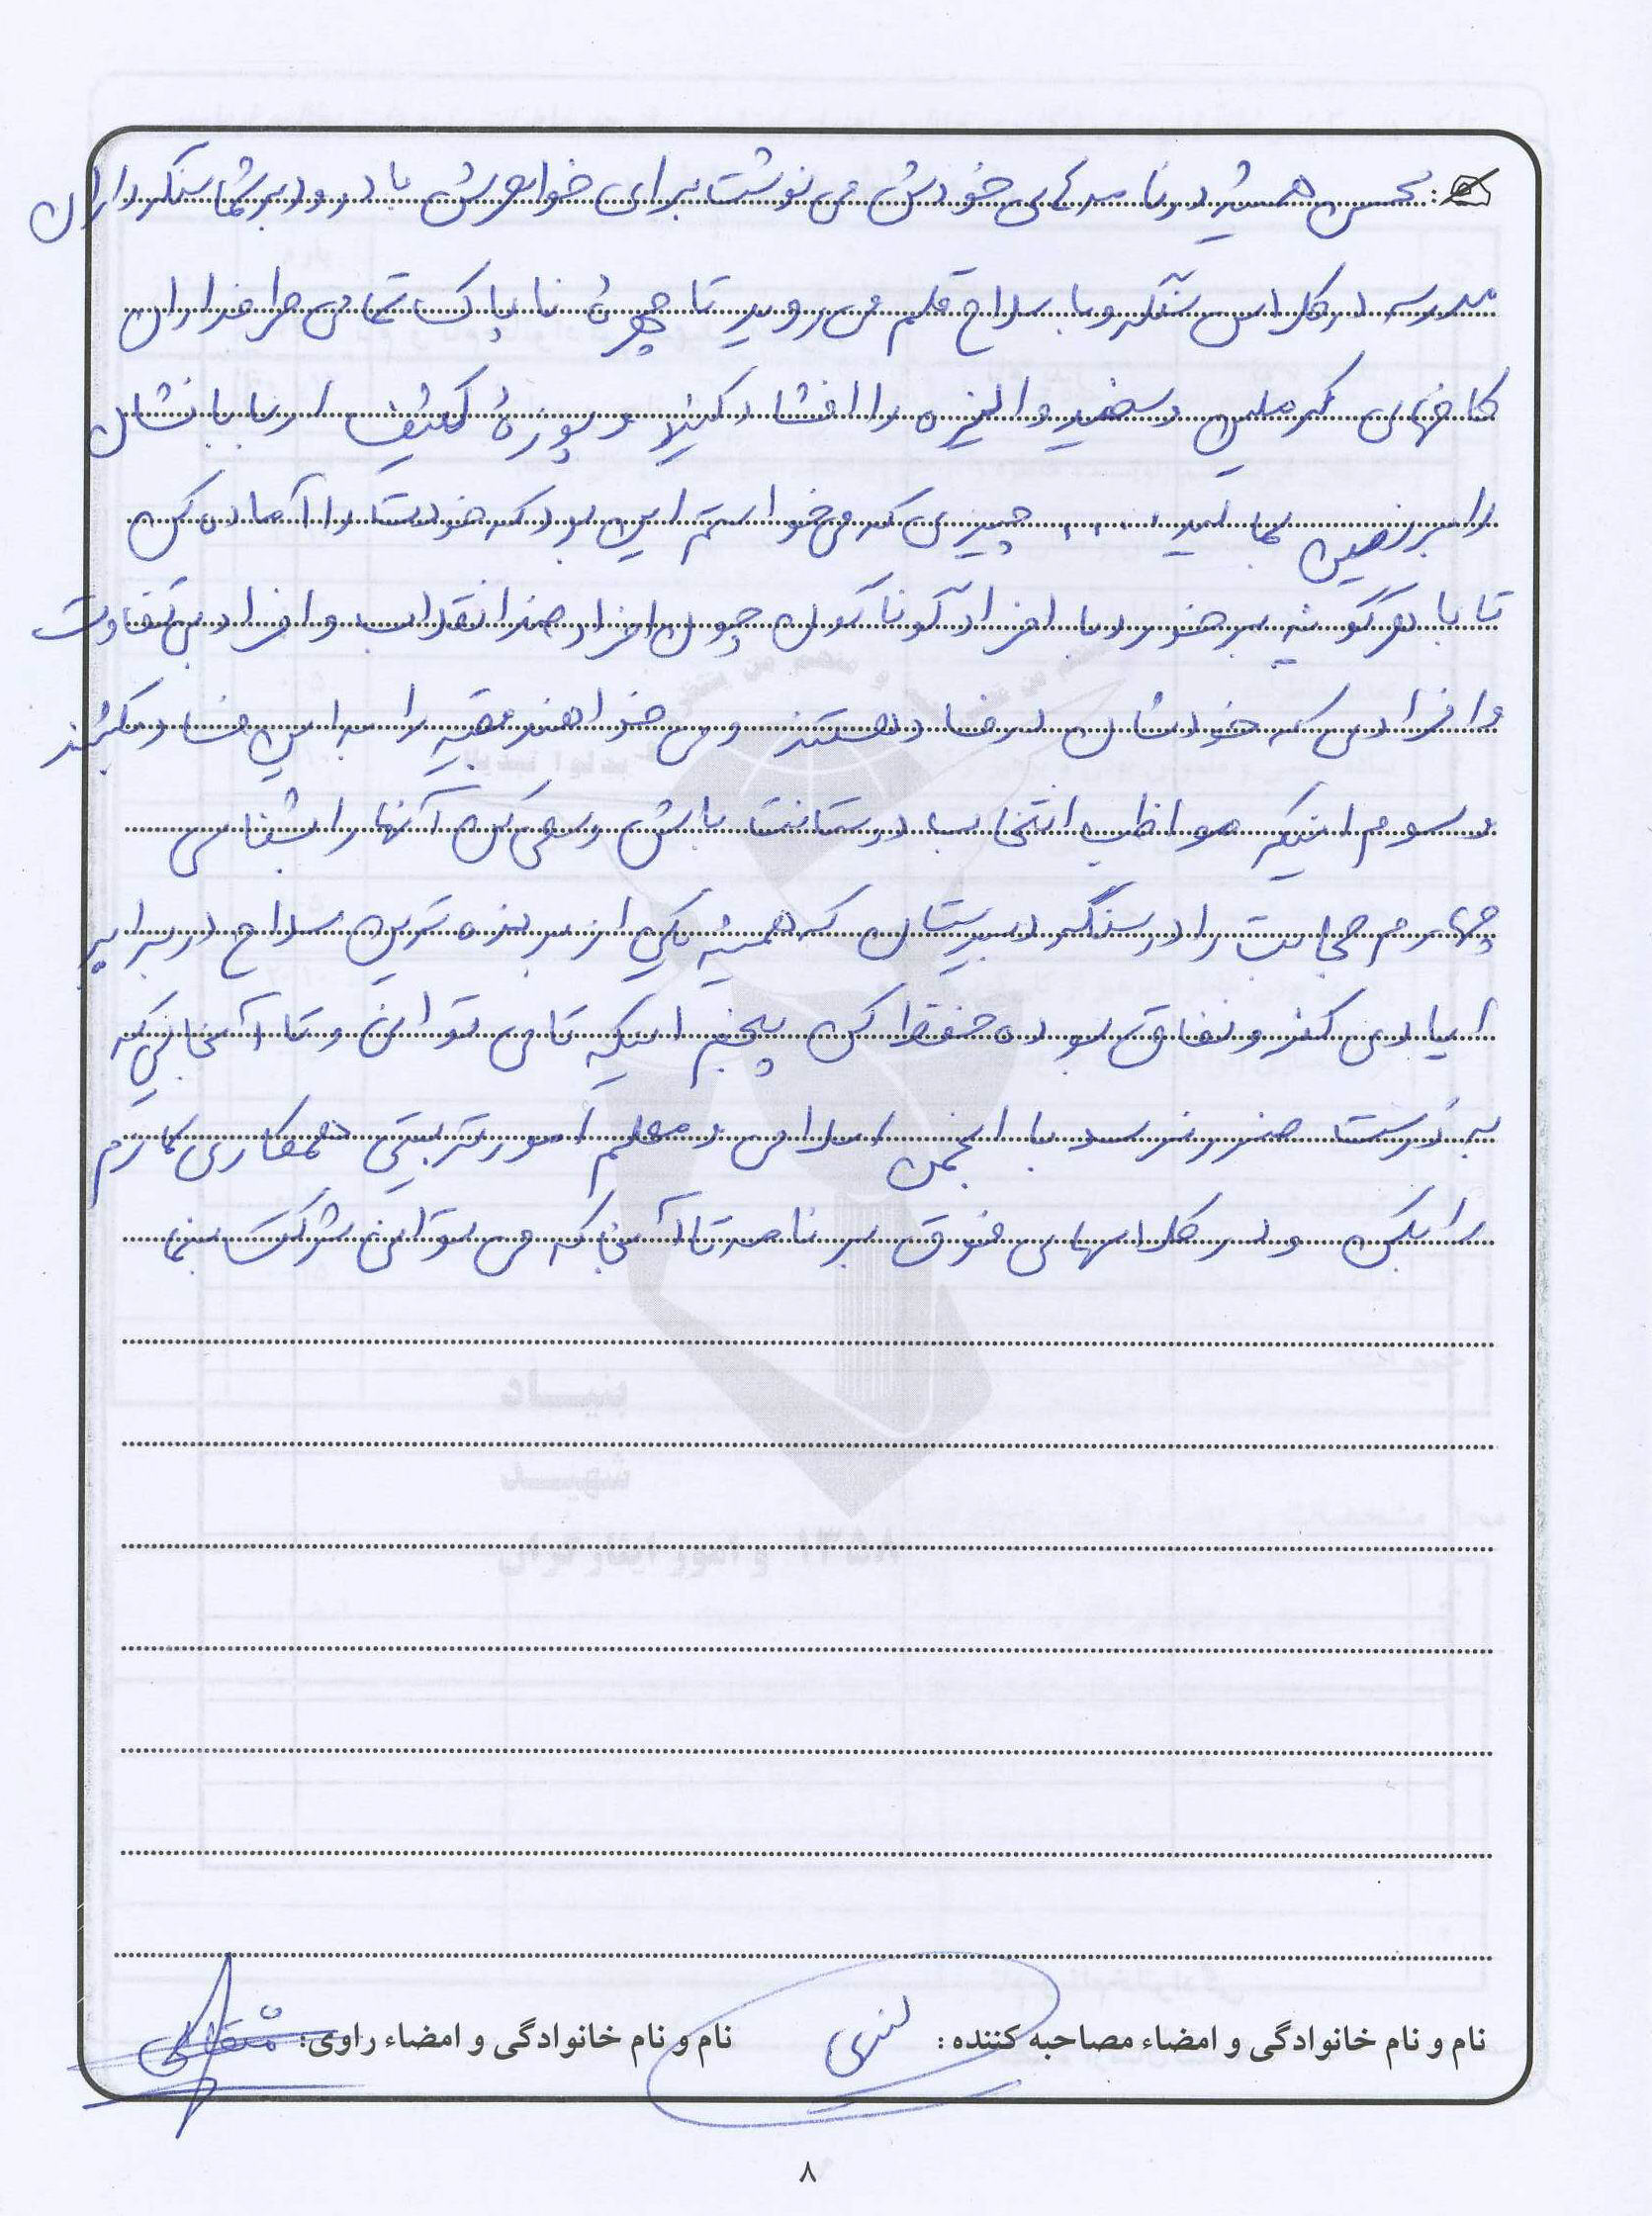 محسن همیشه در نامه های خودش می نوشت برای خواهرش با درود بر شما سنگرداران
مدرسه در کلاس سنگر و با سلاح قلم می روید تا چهرهٔ ناپاک تمامی طرفداران
کاخهای کرملین و سفید و الیزه را افشا کنید و پوزهٔ کثیف اربابانشان
را بر زمین بمالید ..... چیزی که می خواستم این بود که خودت را آماده کن
تا با هرگونه برخورد با افراد گوناگون چون افراد ضد انقلاب و افراد بی تفاوت
و افرادی که خودشان در فساد هستند و می خواهند بقیه را به این فساد بکشند
و سوم اینکه مواظب انتخاب دوستانت باش و سعی کن آنها را بشناسی
چهارم حجابت را در سنگر دبیرستان که همیشه یکی از برنده ترین سلاح در برابر
ایادی کفر و نفاق بوده حفظ کن پنجم اینکه تا می توانی و تا آنجائی که
به درست ضرر نرسد با انجمن اسلامی و معلم امور تربیتی همکاری لازم
را بکن و در کلاسهای فوق برنامه تا آنجا که می توانی شرکت بنما
نام و نام خانوادگی و امضاء مصاحبه کننده: نام و نام خانوادگی و امضاء راوی:
۸
بنیاد
شهید
و امور ایثارگران ۱۳۵۸